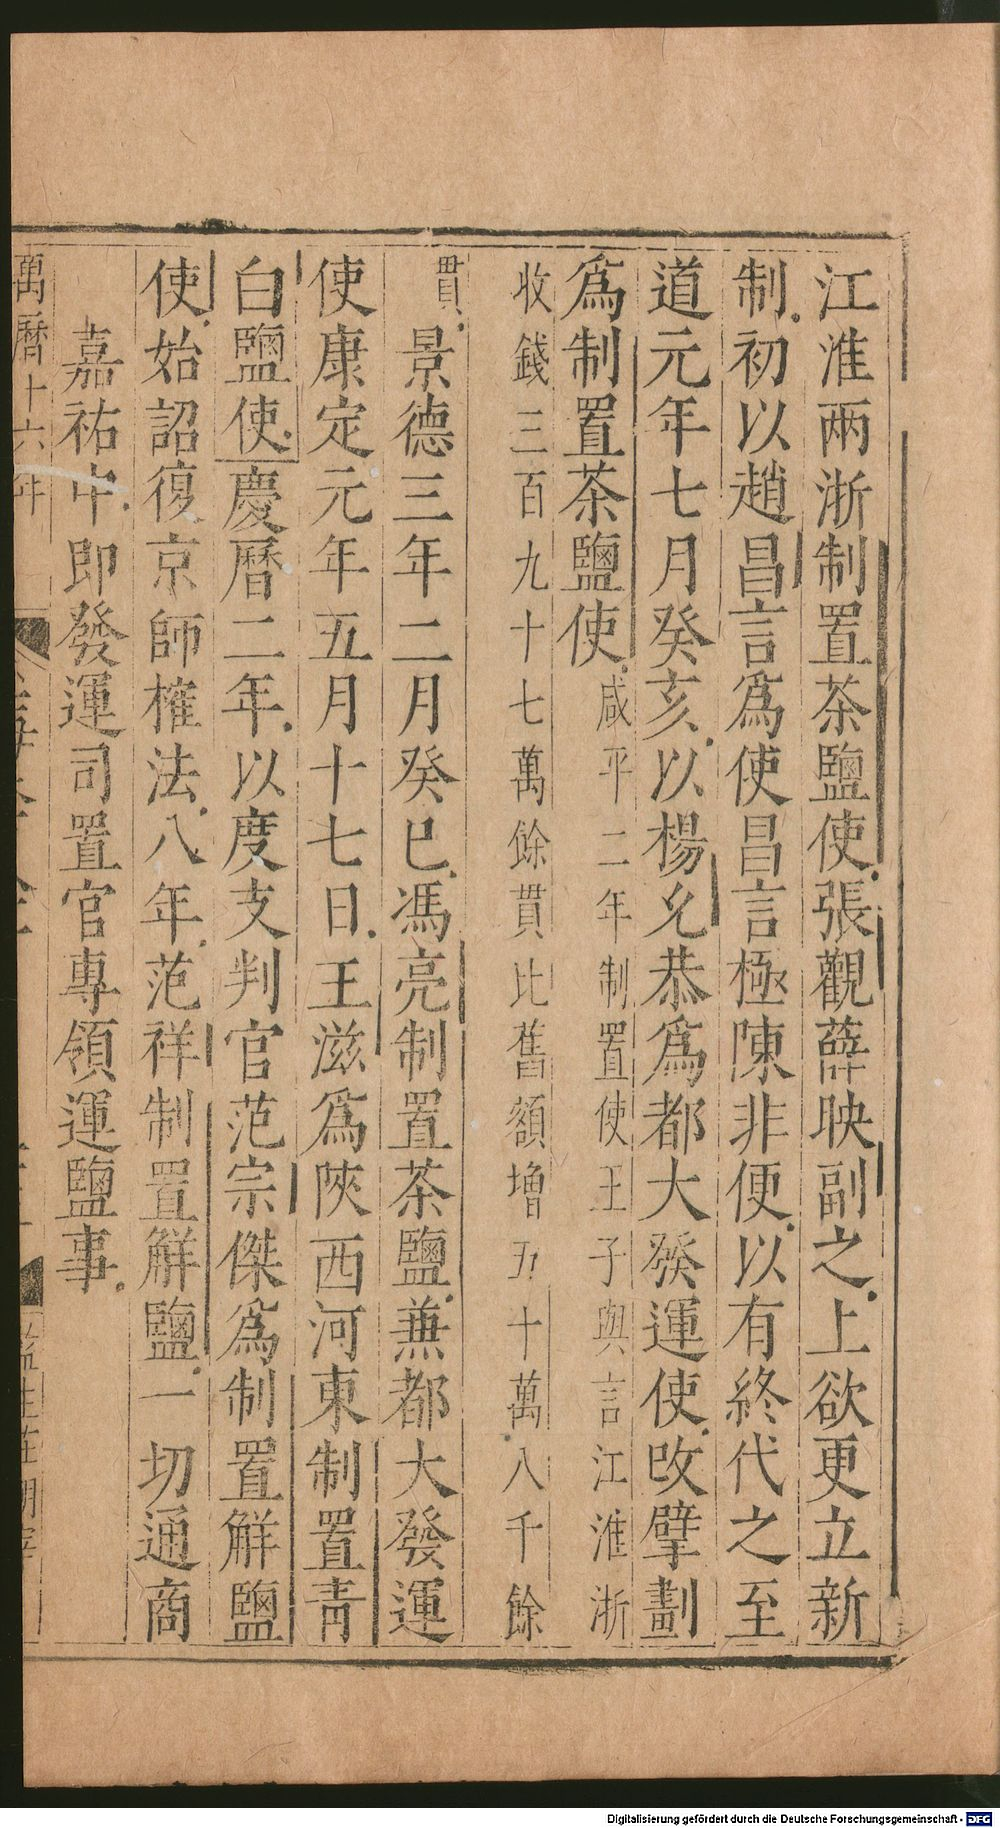 江淮兩浙制置茶鹽使張觀薛映副之上欲更立新
制初以趙昌言爲使昌言極陳非便以有終代之至
道元年七月癸亥以楊允恭爲都大發運使改擘劃
爲制置茶鹽使咸平二年制置使王子輿言江淮浙
收錢三百九十七萬餘貫比舊額增五十萬八千餘
貫景德三年二月癸巳馮亮制置茶鹽兼都大發運
使康定元年五月十七日王滋爲陝西河東制置青
白鹽使慶曆二年以度支判官范宗傑爲制置解鹽
使始詔復京師榷法八年范祥制置解鹽一切通商
嘉祐中即發運司置官專領運鹽事
萬曆十六年
Digitalisierung gefördert durch die Deutsche Forschungsgemeinschaft - DFG